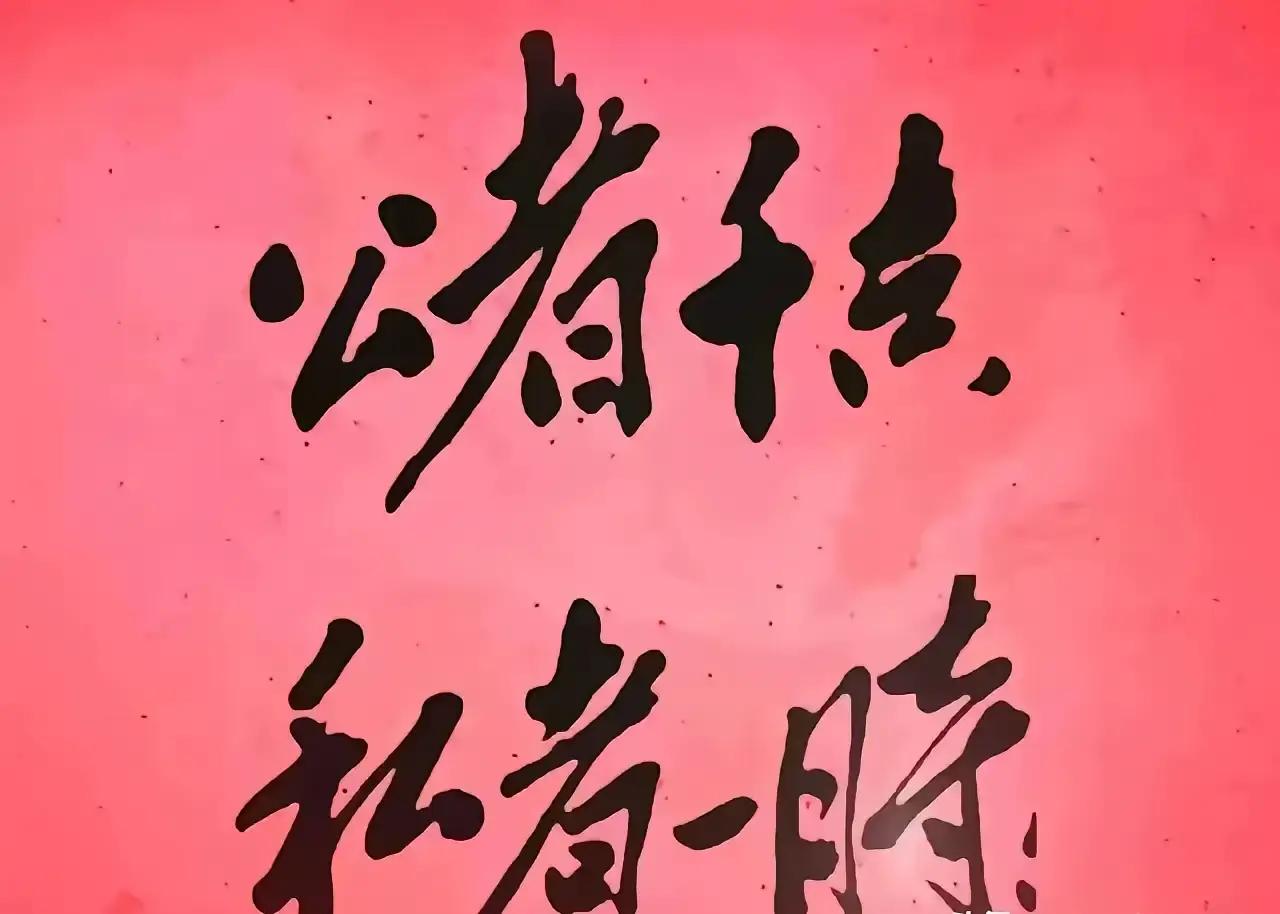 公者千古
私者一時